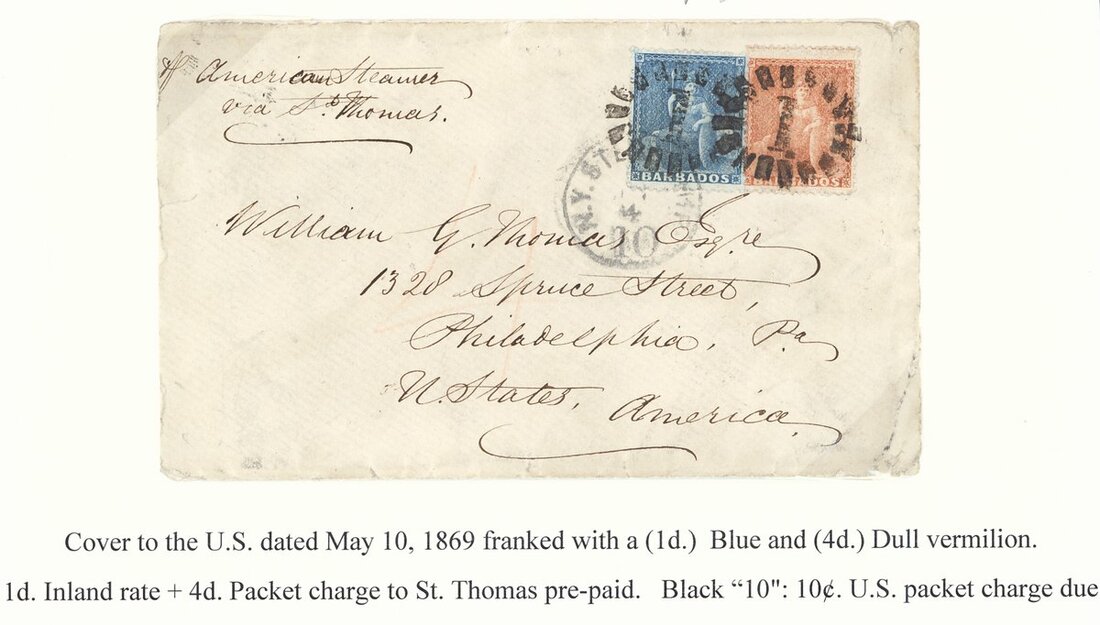 American Steamer
via St. Thomas.
BARBADOS
BARBADOS
N.Y. STE
10
William G. Thomas Esqre
1328 Spruce Street,
Philadelphia, Pa
U. States, America,
Cover to the U.S. dated May 10, 1869 franked with a (1d.) Blue and (4d.) Dull vermilion.
1d. Inland rate + 4d. Packet charge to St. Thomas pre-paid. Black “10": 10¢. U.S. packet charge due